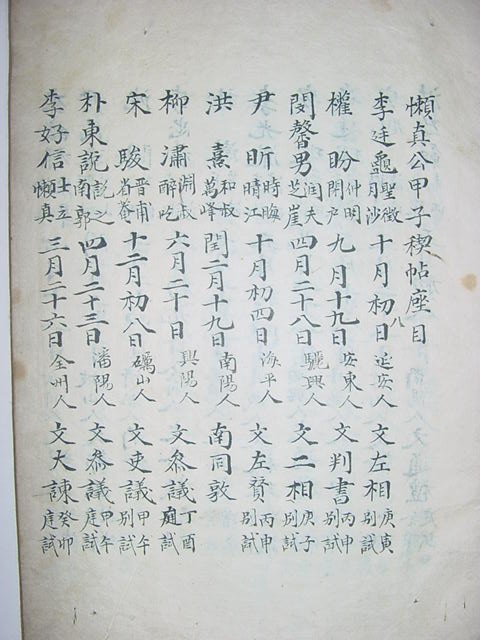 懶真公甲子稧帖座目
李廷龜 聖徵 月沙 十月初八日 延安人 文左相 庚寅 別試
權盼 仲明 閉戶 九月十九日 安東人 文判書 丙申 別試
閔馨男 潤夫 芝崖 四月二十八日 驪興人 文二相 庚子 別試
尹昕 時晦 晴江 十月初四日 海平人 文左贊 丙申 別試
洪憙 和叔 萬峰 閏二月十九日 南陽人 南同敦
柳潚 淵叔 醉吃 六月二十日 興陽人 文參議 丁酉 庭試
宋駿 晋甫 省菴 十二月初八日 礪山人 文吏議 甲午 別試
朴東說 說之 南郭 四月二十三日 潘陽人 文參議 甲午 庭試
李好信 士立 懶真 三月二十六日 全州人 文大諫 癸卯 庭試